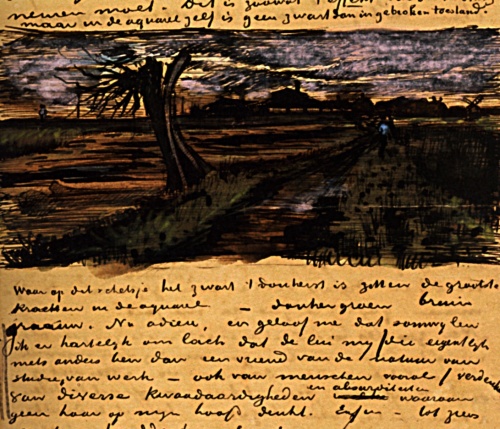 nemen moet. Dit is zoowat
maar in de aquarel zelf is geen zwart dan in gebroken toestand.
Waar op dit schetsje het zwart 't donkerst is zitten de grootste
krachten in de aquarel – donkergroen bruin
graauw. Nu adieu, en geloof me dat somwylen
ik er hartelyk om lach dat de lui my die eigentlyk
niets anders ben dan een vriend van de natuur van
studie, van werk – ook van menschen vooral verdenken
van diverse kwaadaardigheden en absurditeiten waaraan
geen haar op mijn hoofd denkt. Enfin – tot ziens